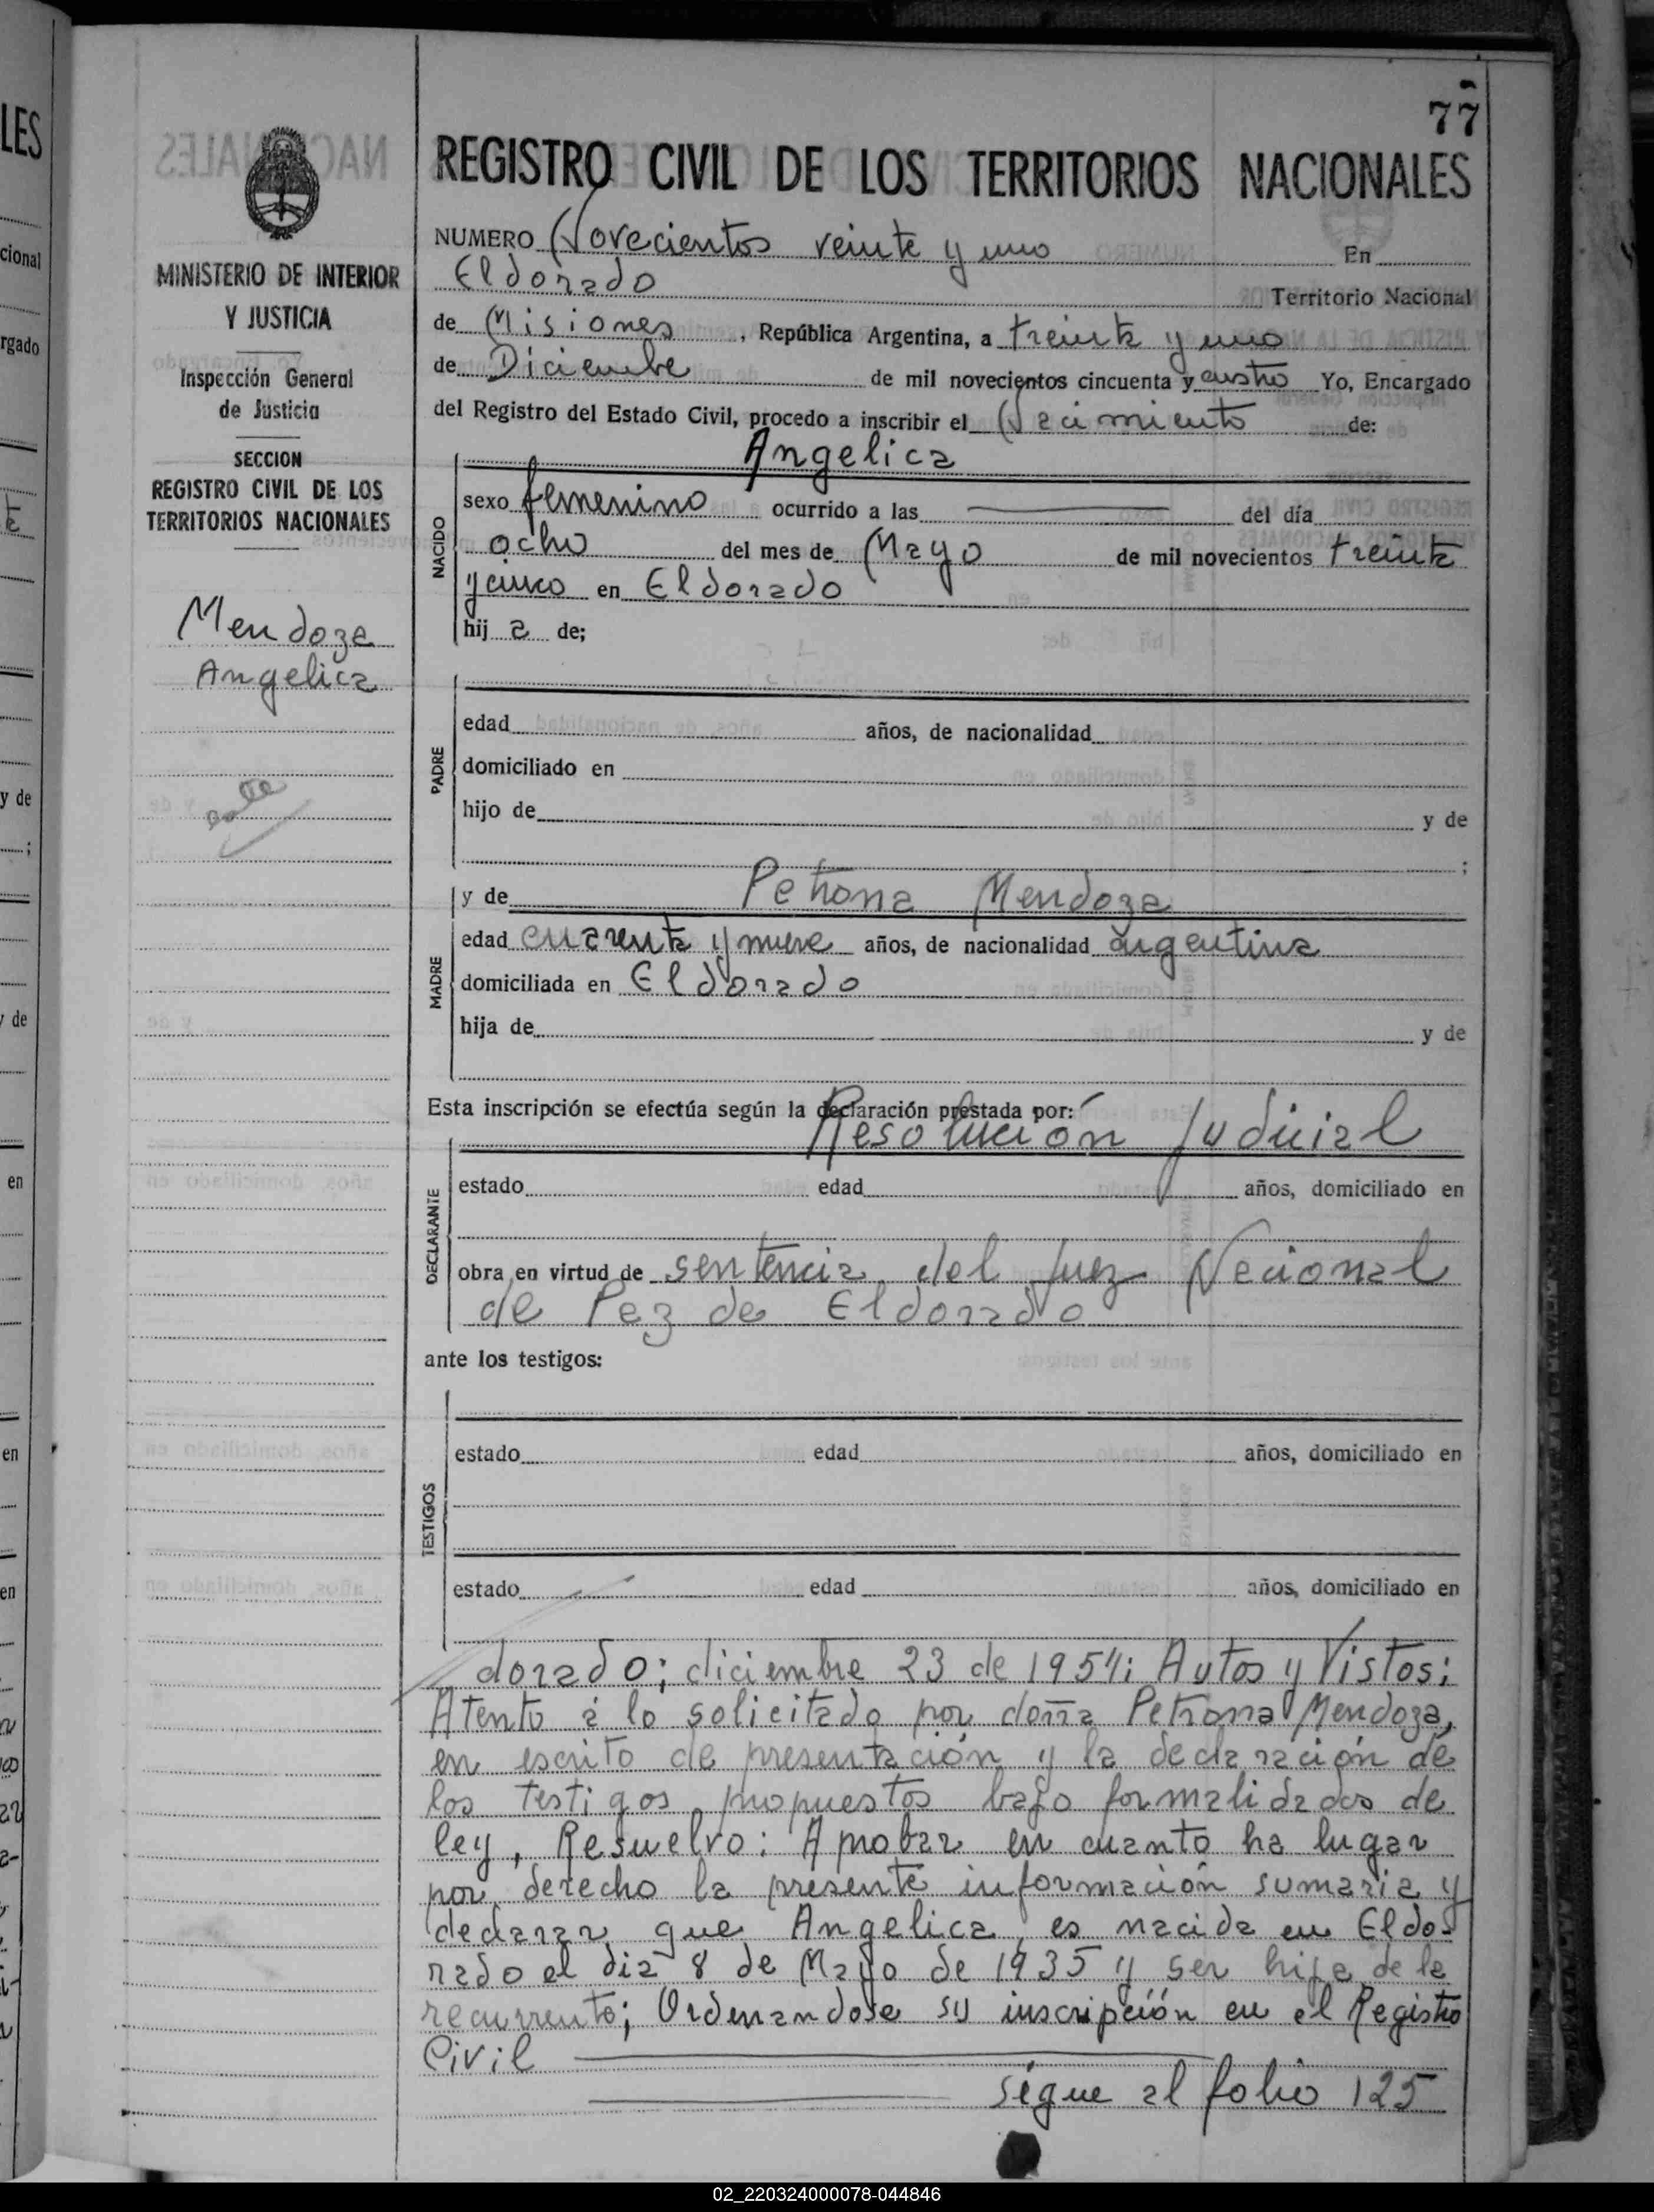 77
REGISTRO CIVIL DE LOS TERRITORIOS NACIONALES
MINISTERIO DE INTERIOR
Y JUSTICIA
Inspección General
de Justicia
SECCION
REGISTRO CIVIL DE LOS
TERRITORIOS NACIONALES
Mendoza
Angelica
NUMERO Novecientos veinte y uno En
Eldorado Territorio Nacional
de Misiones, República Argentina, a treinta y uno
de Diciembre de mil novecientos cincuenta y cuatro Yo, Encargado
del Registro del Estado Civil, procedo a inscribir el Nacimiento de:
NACIDO
Angelica
sexo femenino ocurrido a las del día
ocho del mes de Mayo de mil novecientos treinta
y cinco en Eldorado
hij a de;
PADRE
edad años, de nacionalidad
domiciliado en
hijo de y de
;
MADRE
y de Petrona Mendoza
edad cuarenta y nueve años, de nacionalidad argentina
domiciliada en Eldorado
hija de y de
Esta inscripción se efectúa según la declaración prestada por:
DECLARANTE
Resolución Judicial
estado edad años, domiciliado en
obra en virtud de sentencia del Juez Nacional
de Paz de Eldorado
ante los testigos:
TESTIGOS
estado edad años, domiciliado en
estado edad años, domiciliado en
dorado; diciembre 23 de 1954: Autos y Vistos;
Atento a lo solicitado por doña Petrona Mendoza,
en escrito de presentación y la declaración de
los testigos propuestos bajo formalidades de
ley, Resuelvo: Aprobar en cuanto ha lugar
por derecho la presente información sumaria y
declarar que Angelica, es nacida en Eldo
rado el dia 8 de Mayo de 1935 y ser hija de la
recurrente; Ordenandose su inscripción en el Registro
Civil
sigue al folio 125
02_220324000078-044846